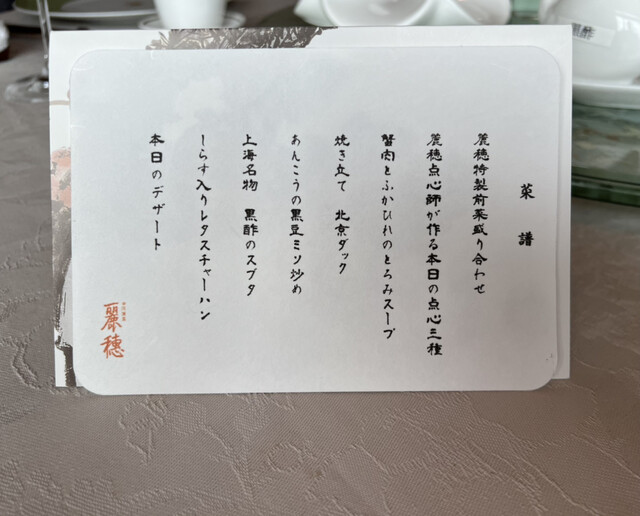 菜譜
麗穂特製前菜盛り合わせ
麗穂点心師が作る本日の点心三種
蟹肉とふかひれのとろみスープ
焼き立て 北京ダック
あんこうの黒豆ミソ炒め
上海名物 黒酢のスブタ
しらす入りレタスチャーハン
本日のデザート
麗穂
黒酢